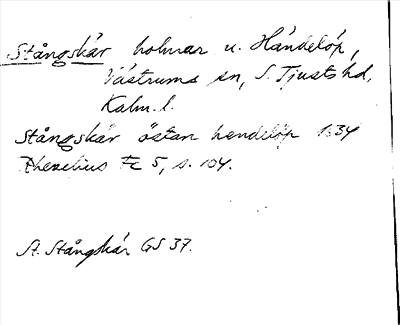 Stångskär holmar u. Händelöp,
Västrums sn, S. Tjusts hd,
Kalm. l.
Stångskär östan hendelöp 1634
Rhezelius Fc 5, s. 104.
St. Stångskär GS 37.